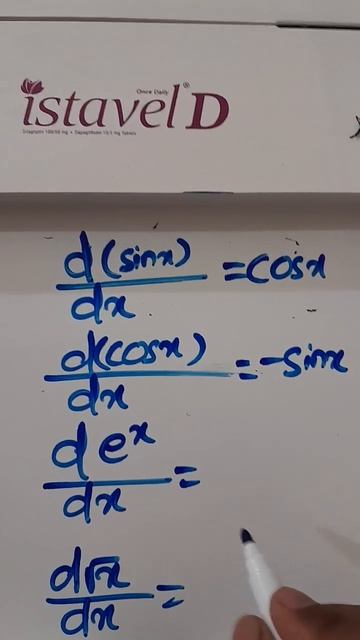 Once Daily
istavel® D
Sitagliptin 100/50 mg + Dapagliflozin 10/5 mg Tablets
d(sinx)/dx = cosx
d(cosx)/dx = -sinx
de^x/dx =
d√x/dx =